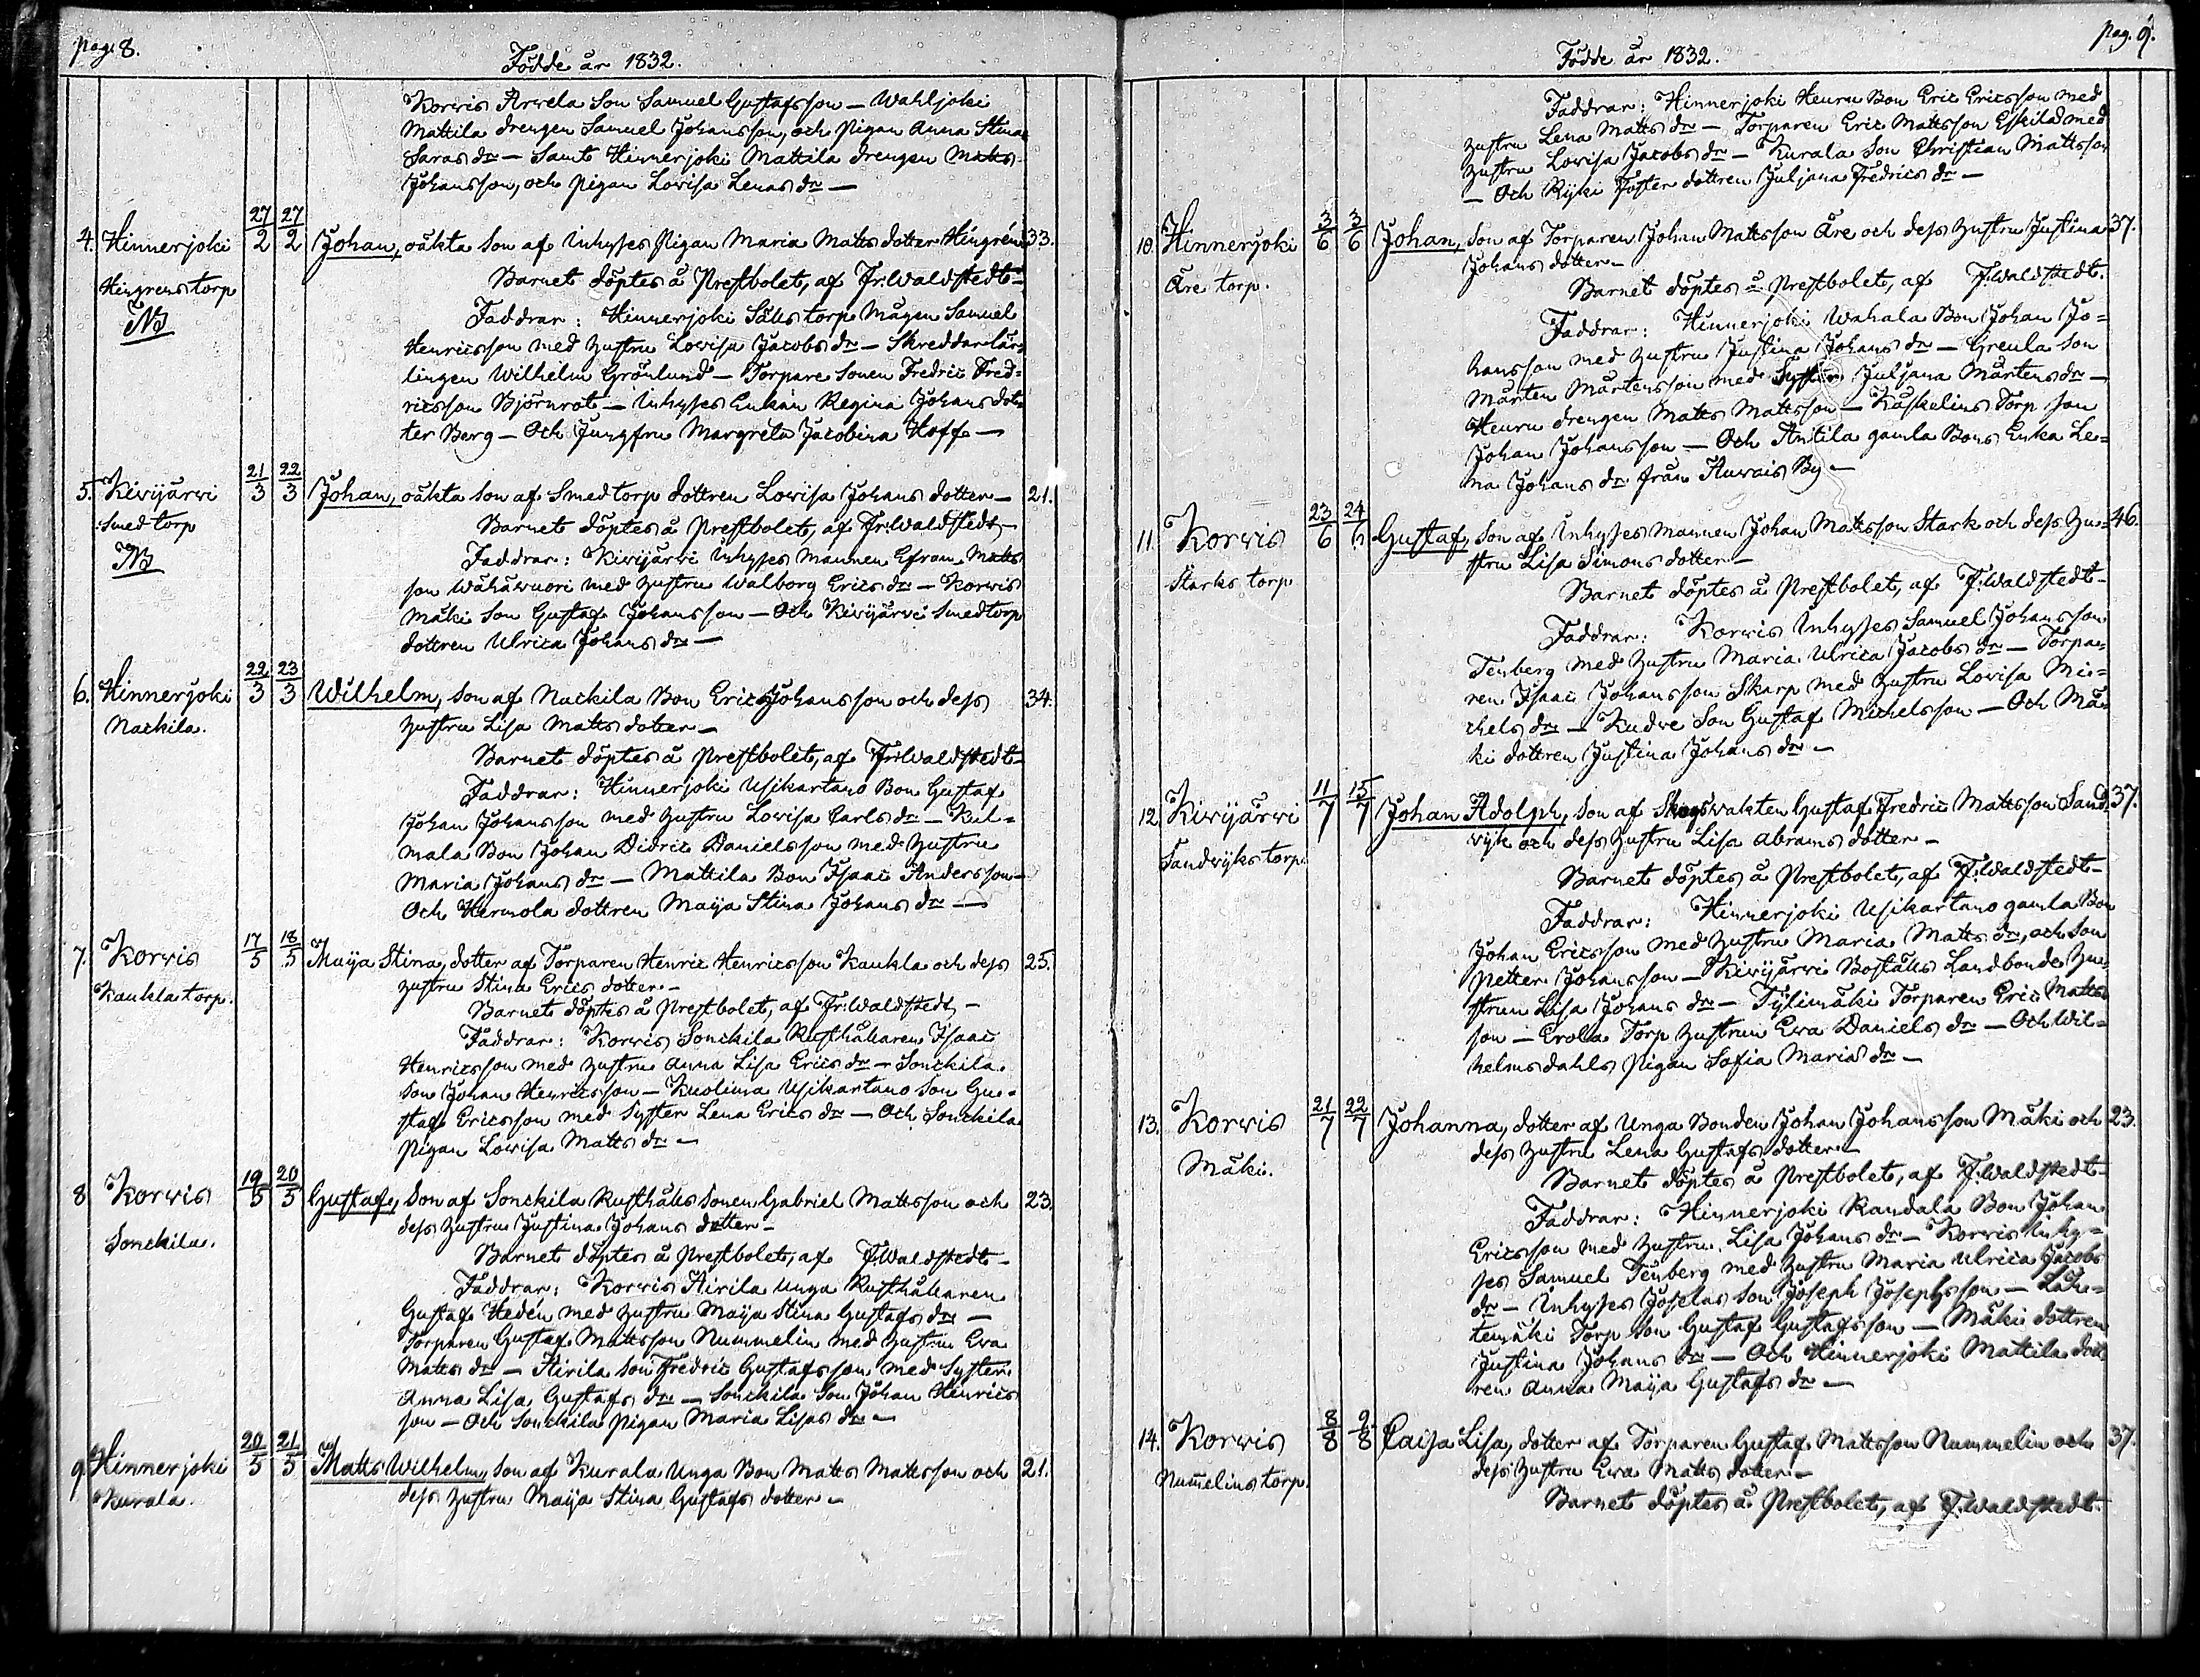 pag. 8.
Födde år 1832.
Korvis Arvela Son Samuel Gustafsson — Wahljoki
Mattila drengen Samuel Johansson, och Pigan Anna Stina
Saras dr — Samt Hinnerjoki Mattila drengen Matts
Johansson, och Pigan Lovisa Lenas dr —
4. Hinnerjoki 27/2 27/2 Johan, oäkta Son af Inhyses Pigan Maria Matts dotter Hingrén 33.
Hingrens torp Barnet döptes å Prestbolet, af Fr. Waldstedt —
NB Faddrar: Hinnerjoki Sälls torp Mågen Samuel
Henricsson med hustru Lovisa Jacobs dr — Skreddarlär-
lingen Wilhelm Grönlund — Torpare Sonen Fredric Fred-
ricsson Björnrot — Inhyses Enkan Regina Johans dot-
ter Berg — Och Jungfru Margreta Jacobina Hoff —
5. Kivijärvi 21/3 22/3 Johan, oäkta Son af Smedtorp dottren Lovisa Johans dotter — 21.
Smed torp Barnet döptes å Prestbolet, af Fr. Waldstedt —
NB Faddrar: Kivijärvi Inhyses Mannen Efram Matts
son Wähävuori med hustru Walborg Erics dr — Korvis
Mäki Son Gustaf Johansson — Och Kivijärvi Smedtorp
dottren Ulrica Johans dr —
6. Hinnerjoki 22/3 23/3 Wilhelm, Son af Nackila Bon Eric Johansson och dess 34.
Nackila. hustru Lisa Matts dotter —
Barnet döptes å Prestbolet, af Fr. Waldstedt —
Faddrar: Hinnerjoki Usikartano Bon Gustaf
Johan Johansson med hustru Lovisa Carls dr — Kul-
mala Bon Johan Didric Danielsson med hustru
Maria Johans dr — Mattila Bon Isaac Andersson —
Och Hermola dottren Maija Stina Johans dr —
7. Korvis 17/5 18/5 Maija Stina, dotter af Torparen Henric Henricsson Kaukla och dess 25.
Kaukla torp. hustru Stina Erics dotter —
Barnet döptes å Prestbolet, af Fr. Waldstedt —
Faddrar: Korvis Sonckila Rusthållaren Isaac
Henricsson med hustru Anna Lisa Erics dr — Sonckila
Son Johan Henricsson — Kuolima Usikartano Son Gu-
staf Ericsson med Syster Lena Erics dr — Och Sonckila
Pigan Lovisa Matts dr —
8 Korvis 19/5 20/5 Gustaf, Son af Sonckila Rusthålls Sonen Gabriel Mattsson och 23.
Sonckila. dess hustru Justina Johans dotter —
Barnet döptes å Prestbolet, af F. Waldstedt —
Faddrar: Korvis Hirila unga Rusthållaren
Gustaf Hedén med hustru Maija Stina Gustafs dr —
Torparen Gustaf Mattsson Nummelin med hustru Eva
Matts dr — Hirila Son Fredric Gustafsson med Syster
Anna Lisa Gustafs dr — Sonckila Son Johan Henrics
son — Och Sonckila Pigan Maria Lisas dr —
9. Hinnerjoki 20/5 21/5 Matts Wilhelm, Son af Kurala Unga Bon Matts Mattsson och 21.
Kurala. dess hustru Maija Stina Gustafs dotter —
pag. 9.
Födde år 1832.
Faddrar: Hinnerjoki Heuru Bon Eric Ericsson med
hustru Lena Matts dr — Torparen Eric Mattsson Eskild med
hustru Lovisa Jacobs dr — Kurala Son Christian Mattsson
— Och Ryki Foster dottren Juljana Fredrics dr —
10. Hinnerjoki 3/6 3/6 Johan, Son af Torparen Johan Mattsson Åre och dess hustru Justina 37.
Åre torp. Johans dotter —
Barnet döptes å Prestbolet, af F. Waldstedt.
Faddrar: Hinnerjoki Wahala Bon Johan Jo-
hansson med hustru Justina Johans dr — Greula Son
Mårten Mårtensson med Syster Juljana Mårtens dr —
Heuru drengen Matts Mattsson — Käskelins Torp Son
Johan Johansson — Och Antila gamla Bons Enka Le-
na Johans dr från Auvais By —
11. Korvis 23/6 24/6 Gustaf, Son af Inhyses Mannen Johan Mattsson Stark och dess hu- 46.
Starks torp stru Lisa Simons dotter —
Barnet döptes å Prestbolet, af F. Waldstedt —
Faddrar: Korvis Inhyses Samuel Johansson
Tenberg med hustru Maria Ulrica Jacobs dr — Torpa-
ren Isaac Johansson Skarp med hustru Lovisa Mi-
chels dr — Kudre Son Gustaf Michelsson — Och Mä-
ki dottren Justina Johans dr —
12 Kivijärvi 11/7 15/7 Johan Adolph, Son af Skogsvakten Gustaf Fredric Mattsson Sand- 37.
Sandvyks torp. vyk och dess hustru Lisa Abrams dotter —
Barnet döptes å Prestbolet, af F. Waldstedt —
Faddrar: Hinnerjoki Usikartano gamla Bon
Johan Ericsson med hustru Maria Matts dr, och Son
Petter Johansson — Kivijärvi Boställs Landbonde hu-
strun Lisa Johans dr — Tÿlimäki Torparen Eric Matts-
son — Erola Torp hustrun Eva Daniels dr — Och Wil-
helmsdahls Pigan Sofia Maria dr —
13. Korvis 21/7 22/7 Johanna, dotter af Unga Bonden Johan Johansson Mäki och 23.
Mäki. dess hustru Lena Gustafs dotter —
Barnet döptes å Prestbolet, af F. Waldstedt —
Faddrar: Hinnerjoki Randala Bon Johan
Ericsson med hustru Lisa Johans dr — Korvis Inhy-
ses Samuel Tenberg med hustru Maria Ulrica Jacobs
dr — Inhyses Joselas Son Joseph Josephsson — Läh-
temäki Torp Son Gustaf Gustafsson — Mäki dottren
Justina Johans dr — Och Hinnerjoki Mattila dott-
ren Anna Maija Gustafs dr —
14. Korvis 8/8 9/8 Caisa Lisa, dotter af Torparen Gustaf Mattsson Nummelin och 37.
Numelins torp. dess hustru Eva Matts dotter —
Barnet döptes å Prestbolet, af F. Waldstedt.